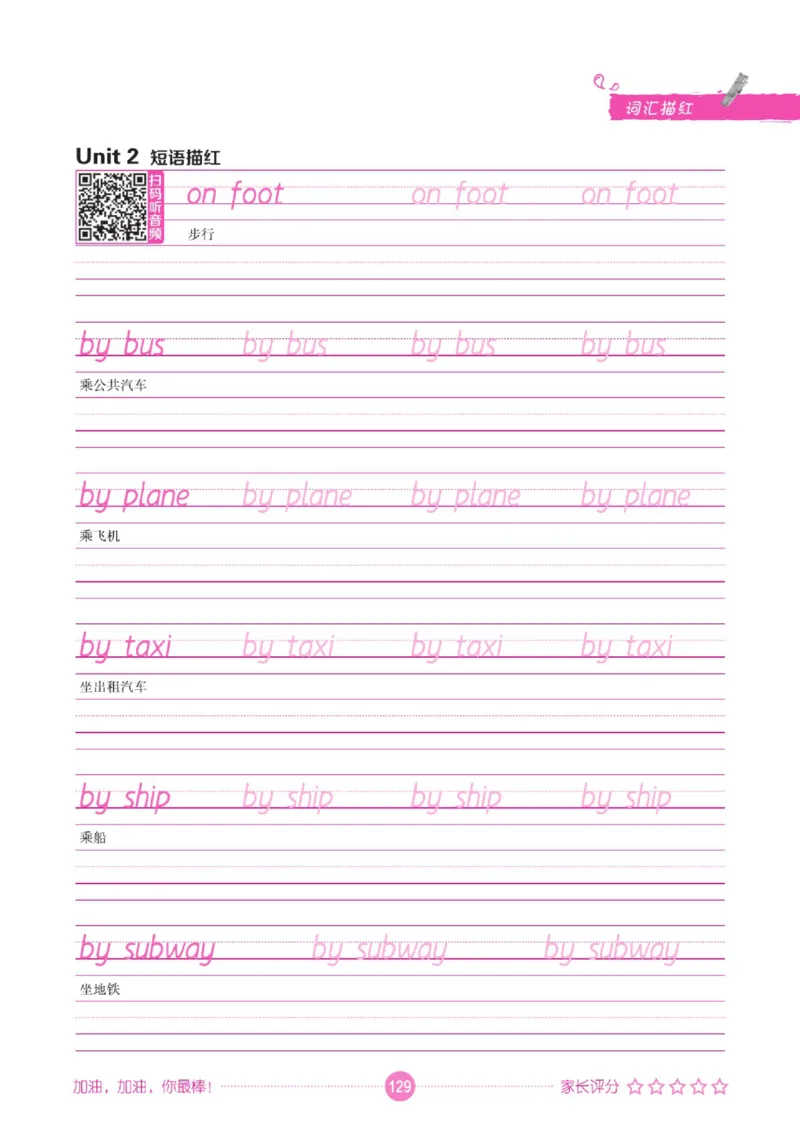 词汇描红
Unit 2 短语描红
扫码听音频
on foot on foot on foot
步行
by bus by bus by bus by bus
乘公共汽车
by plane by plane by plane by plane
乘飞机
by taxi by taxi by taxi by taxi
坐出租汽车
by ship by ship by ship by ship
乘船
by subway by subway by subway
坐地铁
加油，加油，你最棒！ 129 家长评分